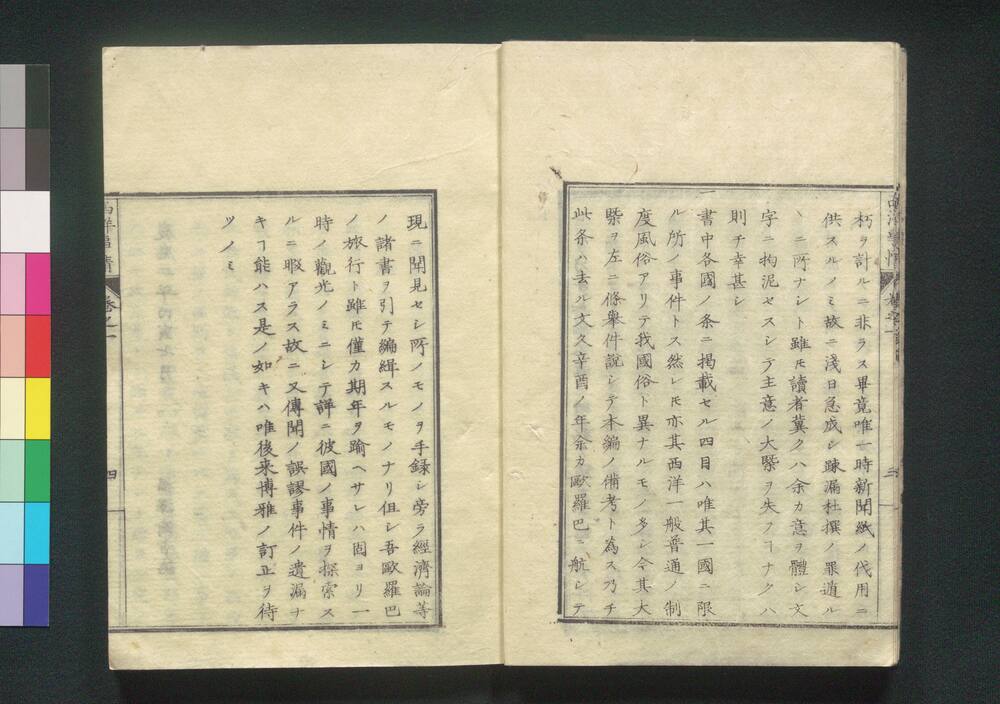 朽ヲ計ルニ非ラス畢竟唯一時新聞紙ノ代用ニ
供スルノミ故ニ淺日急成シ踈漏杜撰ノ罪遁ル
ヽニ所ナシト雖𪜈讀者冀クハ余カ意ヲ體シ文
字ニ拘泥セスシテ主意ノ大槩ヲ失フヿナクハ
則チ幸甚シ
一書中各國ノ条ニ掲載セル四目ハ唯其一國ニ限
ル所ノ事件トス然レ𪜈亦其西洋一般普通ノ制
度風俗アリテ我國俗ト異ナルモノ多シ今其大
槩ヲ左ニ條舉件說シテ本編ノ備考ト為ス乃チ
此条ハ去ル文久辛酉ノ年余カ歐羅巴ニ航シテ
三
現ニ聞見セシ所ノモノヲ手錄シ旁ラ經濟論等
ノ諸書ヲ引テ編緝スルモノナリ但シ吾歐羅巴
ノ旅行ト雖𪜈僅カ期年ヲ踰ヘサレハ固ヨリ一
時ノ觀光ノミニシテ詳ニ彼國ノ事情ヲ探索ス
ルニ暇アラス故ニ又傳聞ノ誤謬事件ノ遺漏ナ
キヿ能ハス是ノ如キハ唯後来博雅ノ訂正ヲ待
ツノミ
西洋事情
卷之一
四